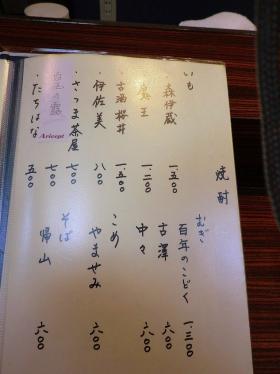 焼酎
いも
・森伊蔵 一.五〇〇
・魔王 一.二〇〇
・古酒櫻井 一.五〇〇
・伊佐美 八〇〇
・さつま茶屋 七〇〇
七〇〇
・たちばな 五〇〇
むぎ
百年のこどく 一.三〇〇
古澤 六〇〇
中々 六〇〇
こめ
やませみ 六〇〇
そば
帰山 六〇〇
Aricept